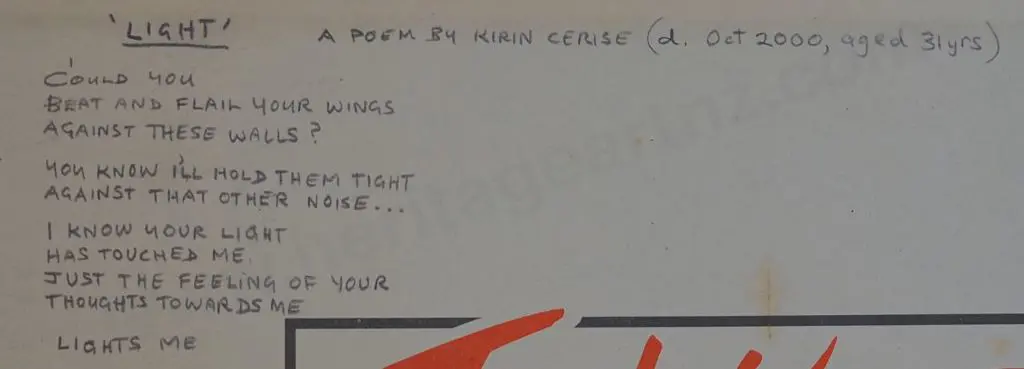 'LIGHT' A POEM BY KIRIN CERISE (d. Oct 2000, aged 31yrs)
'COULD YOU
BEAT AND FLAIL YOUR WINGS
AGAINST THESE WALLS?
YOU KNOW I'LL HOLD THEM TIGHT
AGAINST THAT OTHER NOISE...
I KNOW YOUR LIGHT
HAS TOUCHED ME.
JUST THE FEELING OF YOUR
THOUGHTS TOWARDS ME
LIGHTS ME